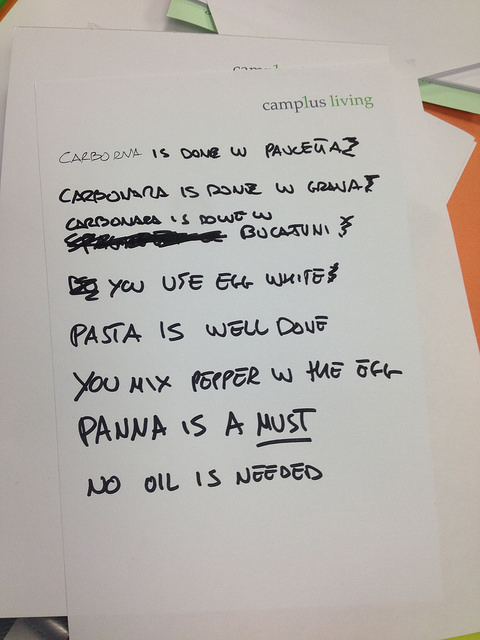 camplus living
CARBORNA IS DONE W PANCETTA
CARBONARA IS DONE W GRANA
CARBONARA IS DONE W
BUCATINI
YOU USE EGG WHITES
PASTA IS WELL DONE
YOU MIX PEPPER W THE EGG
PANNA IS A MUST
NO OIL IS NEEDED